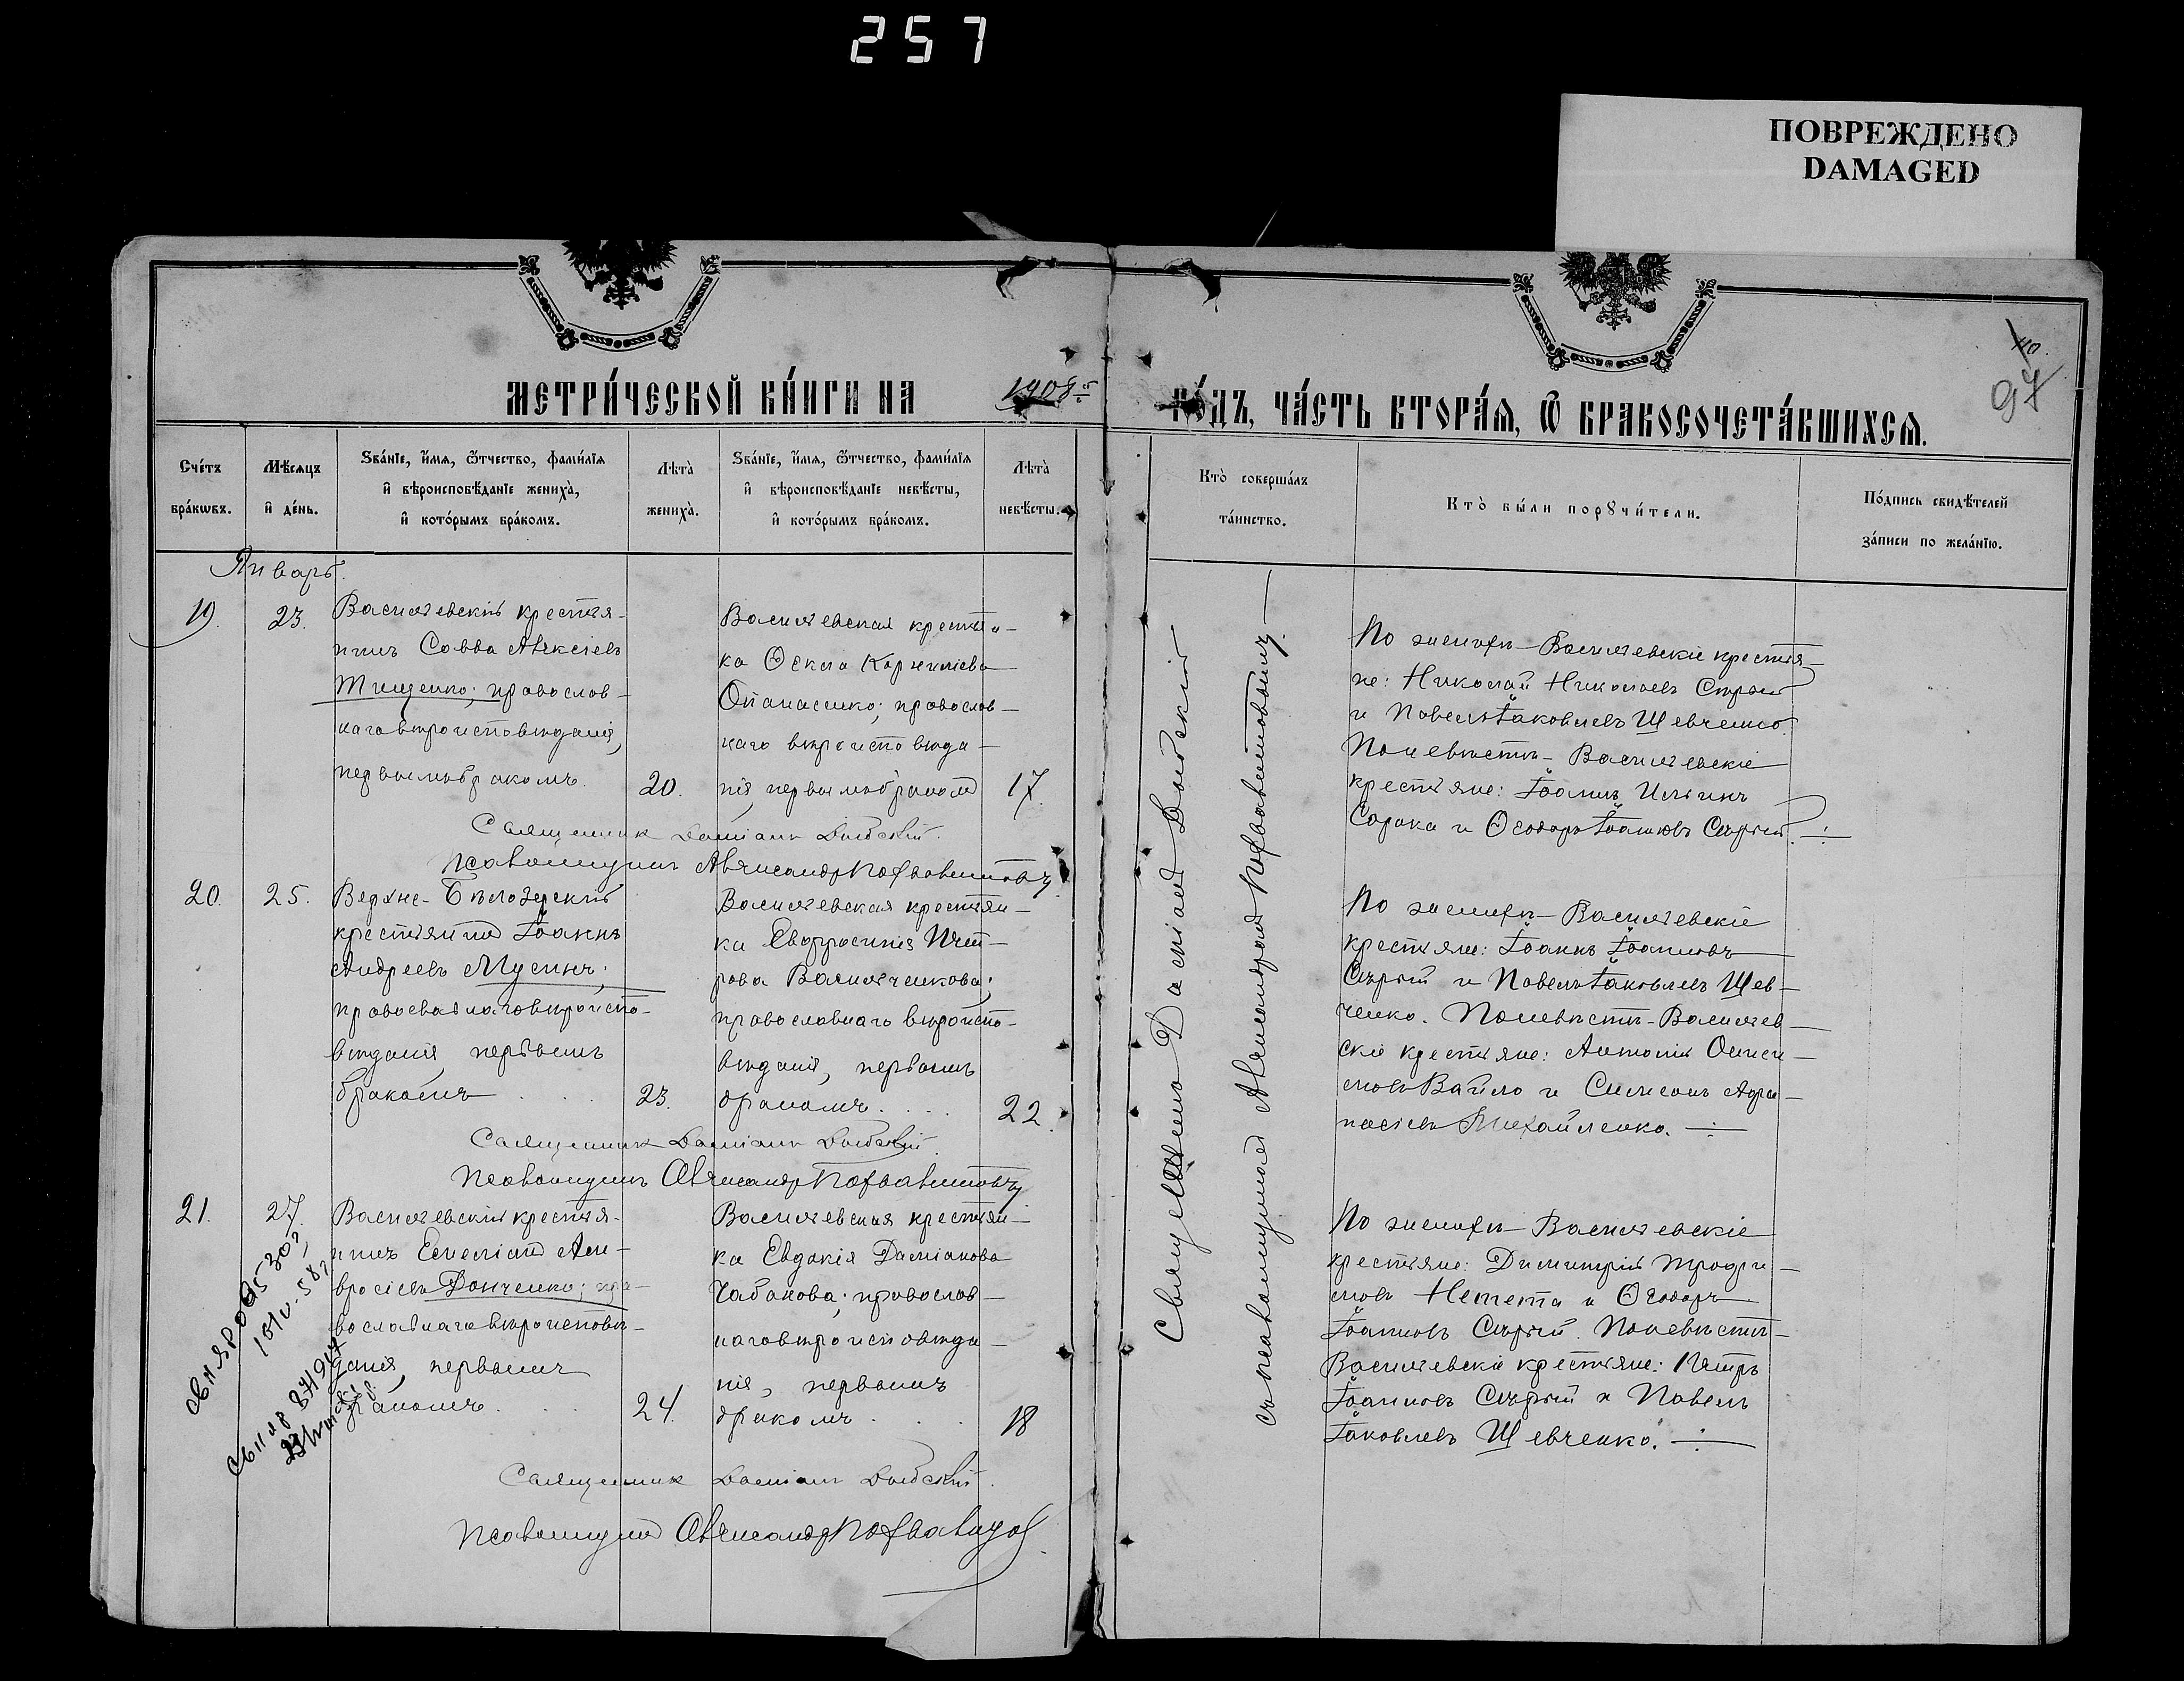 257
ПОВРЕЖДЕНО
DAMAGED
МЕТРИ́ЧЕСКОЙ КНИ́ГИ НА 1908й
ГО́ДЪ, ЧА́СТЬ ВТОРА́Я, Ѿ БРАКОСОЧЕТА́ВШИХСЯ.
40.
97
Сче́тъ
бра́кѡвъ.
Мѣ́сяцъ
и҆ де́нь.
Ѕва́нїе, и҆́мя, ѻ҆́тчество, фами́лїя
и҆ вѣроисповѣ́данїе жениха̀,
и҆ кото́рымъ бра́комъ.
Лѣта̀
жениха̀.
Ѕва́нїе, и҆́мя, ѻ҆́тчество, фами́лїя
и҆ вѣроисповѣ́данїе невѣ́сты,
и҆ кото́рымъ бра́комъ.
Лѣта̀
невѣ́сты.
Кто̀ соверша́лъ
та́инство.
Кто̀ бы́ли порꙋчи́тели.
По́дпись свидѣ́телей
за́писи по жела́нїю.
Январь.
19.
23.
Васильевскій крестья-
нинъ Савва Алексіевъ
Тищенко; православ-
наго вѣроисповѣданія,
первымъ бракомъ.
20.
Васильевская крестьян-
ка Ѳекла Корниліева
Опанасенко; православ-
наго вѣроисповѣда-
нія, первымъ бракомъ
17.
По женихѣ – Васильевскіе крестья-
не: Николай Николаевъ Сѣрый
и Павелъ Іаковлевъ Шевченко.
По невѣстѣ – Васильевскіе
крестьяне: Іоаннъ Ильинъ
Сорока и Ѳеодоръ Іоанновъ Сѣрый.
Священникъ Даміанъ
Псаломщикъ Александръ
20.
25.
Верхне-Бѣлозерскій
крестьянинъ Іоаннъ
Андреевъ Мусинъ;
православнаго вѣроиспо-
вѣданія, первымъ
бракомъ . . .
23.
Васильевская крестьян-
ка Евфросинія Пет-
рова Васильченкова;
православнаго вѣроиспо-
вѣданія, первымъ
бракомъ. . . .
22.
По женихѣ – Васильевскіе
крестьяне: Іоаннъ Іоанновъ
Сѣрый и Павелъ Іаковлевъ Шев-
ченко. По невѣстѣ – Васильев-
скіе крестьяне: Антоній Ониси-
мовъ Вайло и Симеонъ Афа-
насіевъ Михайленко.
Священникъ Даміанъ
Псаломщикъ Александръ
21.
27.
Васильевскій крестья-
нинъ Емеліанъ Ам-
вросіевъ Донченко; пра-
вославнаго вѣроисповѣ-
данія, первымъ
бракомъ. . .
24.
Васильевская крестьян-
ка Евдокія Даміанова
Чабанова; православ-
наго вѣроисповѣда-
нія, первымъ
бракомъ . . .
18
По женихѣ – Васильевскіе
крестьяне: Димитрій Трофи-
мовъ Непета и Ѳеодоръ
Іоанновъ Сѣрый. По невѣстѣ –
Васильевскіе крестьяне: Петръ
Іоанновъ Сѣрый и Павелъ
Іаковлевъ Шевченко.
Священникъ Даміанъ
Псаломщикъ Александръ
Священникъ Даміанъ
съ псаломщикомъ Александромъ